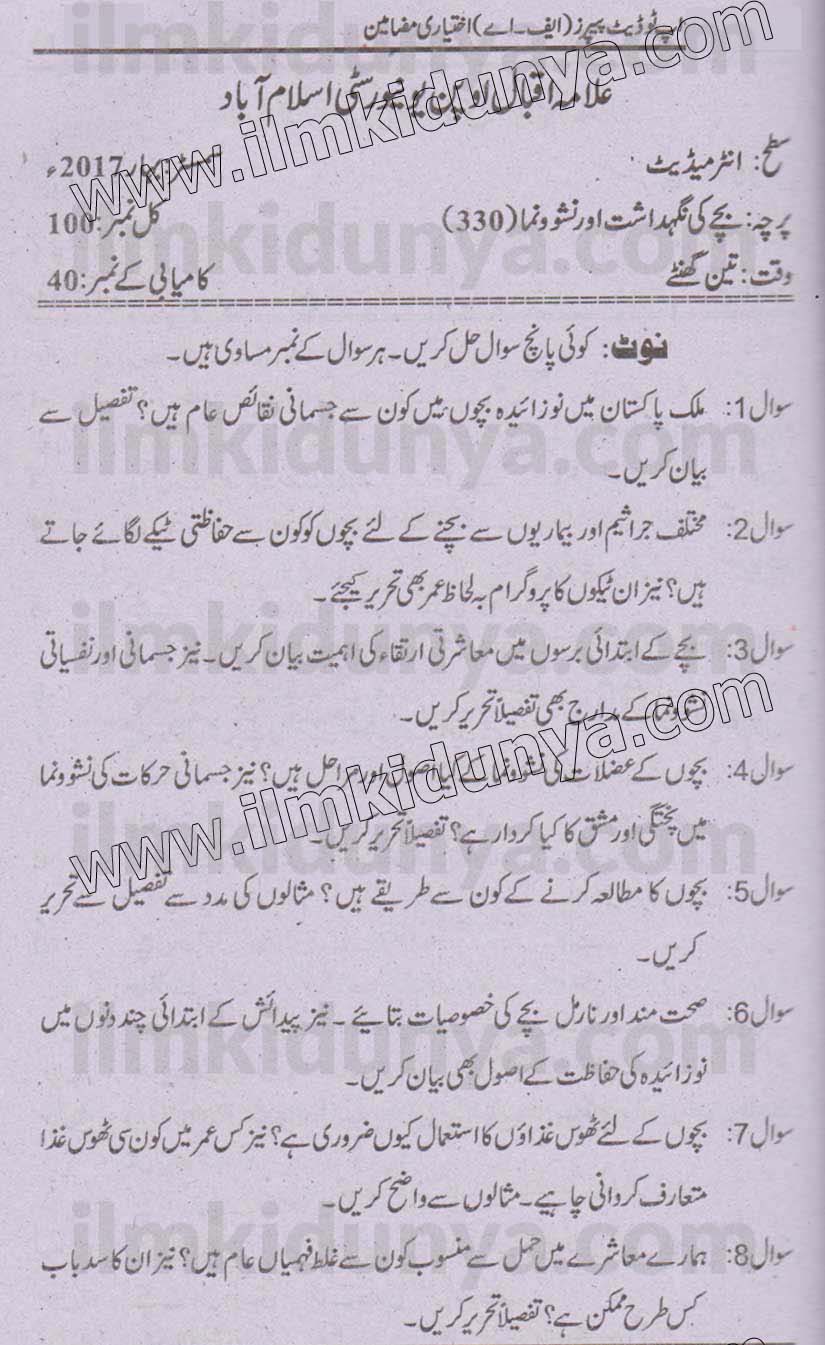 اپ ٹو ڈیٹ پیپرز (ایف۔اے) اختیاری مضامین
علامہ اقبال اوپن یونیورسٹی اسلام آباد
سطح: انٹر میڈیٹ سمسٹر: بہار 2017ء
پرچہ: بچے کی نگہداشت اور نشوونما (330) کل نمبر: 100
وقت: تین گھنٹے کامیابی کے نمبر: 40
نوٹ: کوئی پانچ سوال حل کریں۔ ہر سوال کے نمبر مساوی ہیں۔
سوال 1: ملک پاکستان میں نوزائیدہ بچوں میں کون سے جسمانی نقائص عام ہیں؟ تفصیل سے
بیان کریں۔
سوال 2: مختلف جراثیم اور بیماریوں سے بچنے کے لئے بچوں کو کون سے حفاظتی ٹیکے لگائے جاتے
ہیں؟ نیز ان ٹیکوں کا پروگرام بہ لحاظ عمر بھی تحریر کیجئے۔
سوال 3: بچے کے ابتدائی برسوں میں معاشرتی ارتقاء کی اہمیت بیان کریں۔ نیز جسمانی اور نفسیاتی
نشوونما کے مدارج بھی تفصیلاً تحریر کریں۔
سوال 4: بچوں کے عضلات کی نشوونما کے کیا اصول اور مراحل ہیں؟ نیز جسمانی حرکات کی نشوونما
میں پختگی اور مشق کا کیا کردار ہے؟ تفصیلاً تحریر کریں۔
سوال 5: بچوں کا مطالعہ کرنے کے کون سے طریقے ہیں؟ مثالوں کی مدد سے تفصیل سے تحریر
کریں۔
سوال 6: صحت مند اور نارمل بچے کی خصوصیات بتائیے۔ نیز پیدائش کے ابتدائی چند دنوں میں
نوزائیدہ کی حفاظت کے اصول بھی بیان کریں۔
سوال 7: بچوں کے لئے ٹھوس غذاؤں کا استعمال کیوں ضروری ہے؟ نیز کس عمر میں کون سی ٹھوس غذا
متعارف کروانی چاہیے۔ مثالوں سے واضح کریں۔
سوال 8: ہمارے معاشرے میں حمل سے منسوب کون سے غلط فہمیاں عام ہیں؟ نیز ان کا سدباب
کس طرح ممکن ہے؟ تفصیلاً تحریر کریں۔
www.ilmkidunya.com
www.ilmkidunya.com
ilmkidunya.com
ilmkidunya.com
ilmkidunya.com
ilmkidunya.com
ilmkidunya.com
ilmkidunya.com
ilmkidunya.com